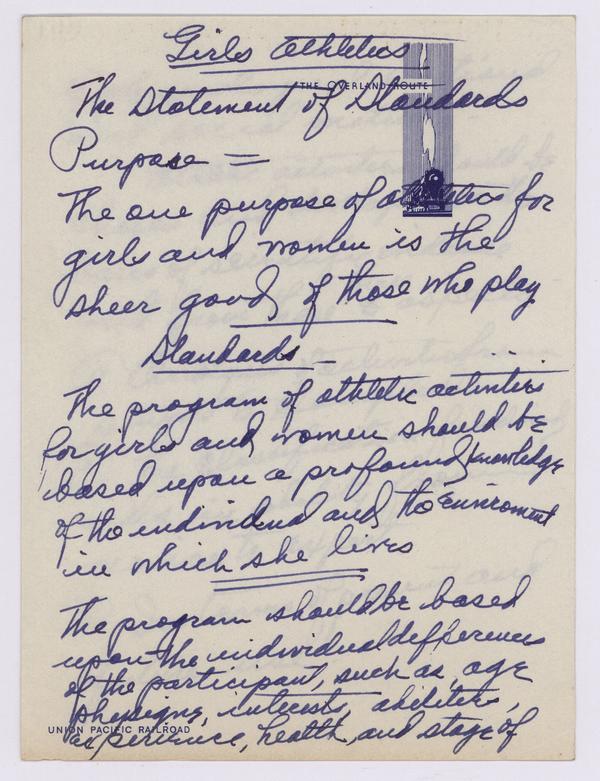 Girls Athletics
THE OVERLAND ROUTE
The Statement of Standards
Purpose =
The one purpose of athletics for
girls and women is the
sheer good of those who play
Standards -
The program of athletic activities
for girls and women should be
based upon a profound knowledge
of the individual and the enviroment
in which she lives
The program should be based
upon the individual differences
of the participant, such as, age
physique, interests, abilities,
experience, health, and stage of
UNION PACIFIC RAILROAD